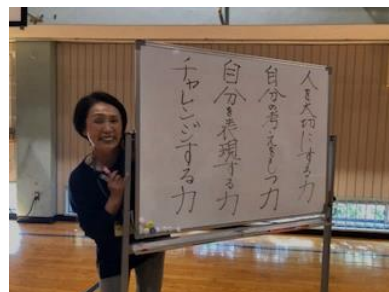 人を大切にする力
自分の考えをもつ力
自分を表現する力
チャレンジする力